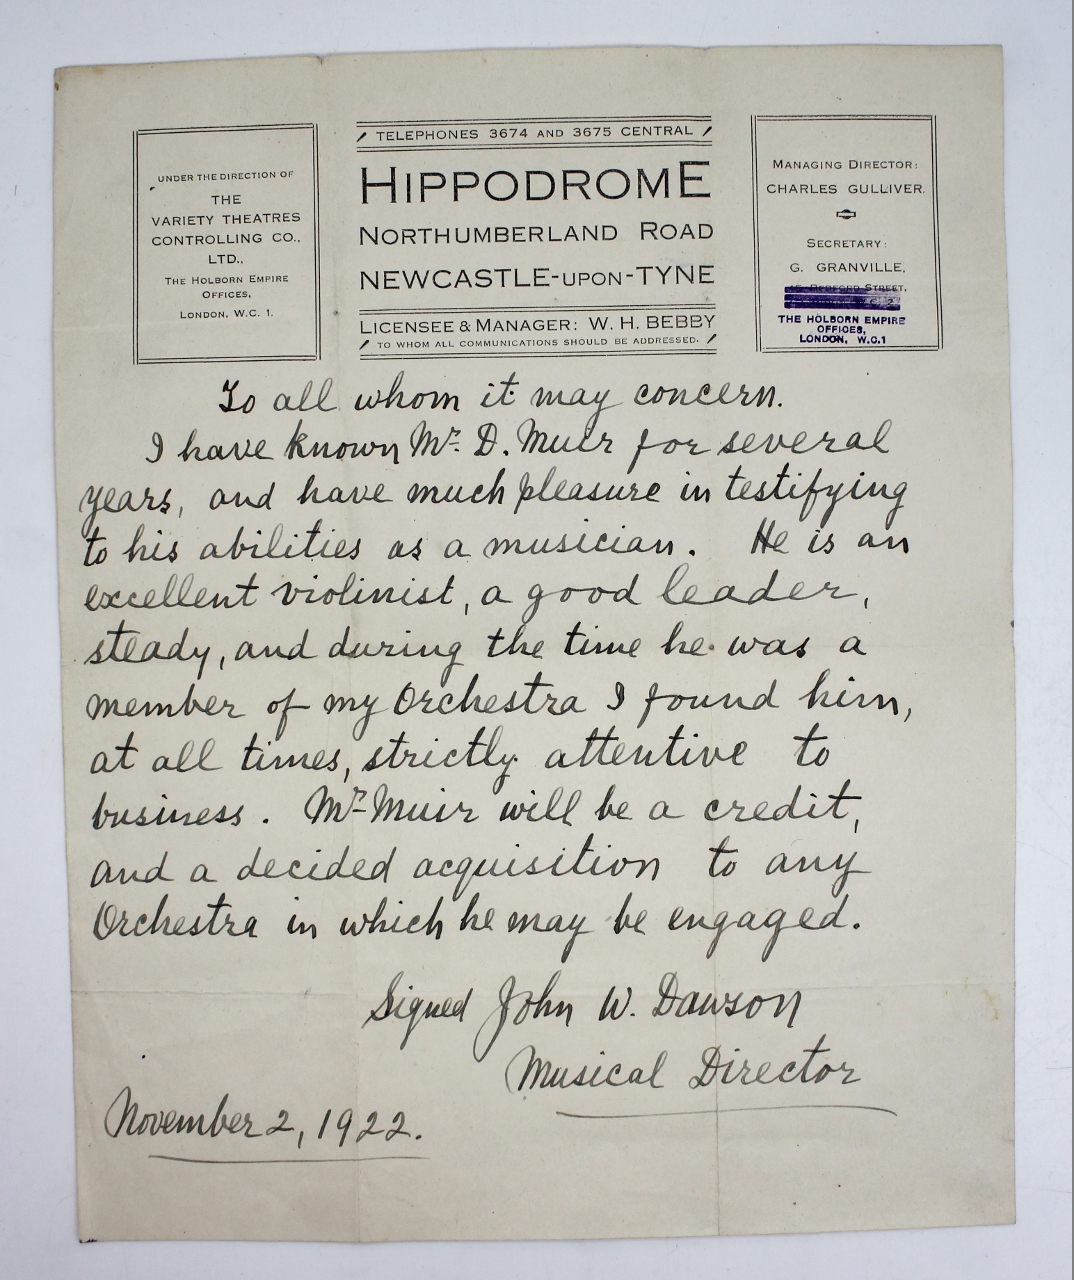 TELEPHONES 3674 AND 3675 CENTRAL
HIPPODROME
NORTHUMBERLAND ROAD
NEWCASTLE-UPON-TYNE
LICENSEE & MANAGER: W. H. BEBBY
TO WHOM ALL COMMUNICATIONS SHOULD BE ADDRESSED.
UNDER THE DIRECTION OF
THE
VARIETY THEATRES
CONTROLLING CO.,
LTD.,
THE HOLBORN EMPIRE
OFFICES,
LONDON, W.C. 1.
MANAGING DIRECTOR:
CHARLES GULLIVER.
SECRETARY:
G. GRANVILLE,
BEDFORD STREET,
THE HOLBORN EMPIRE
OFFICES,
LONDON, W.C.1
To all whom it may concern.
I have known Mr. D. Muir for several
years, and have much pleasure in testifying
to his abilities as a musician. He is an
excellent violinist, a good leader,
steady, and during the time he was a
member of my Orchestra I found him,
at all times, strictly attentive to
business. Mr. Muir will be a credit,
and a decided acquisition to any
Orchestra in which he may be engaged.
Signed John W. Dawson
Musical Director
November 2, 1922.